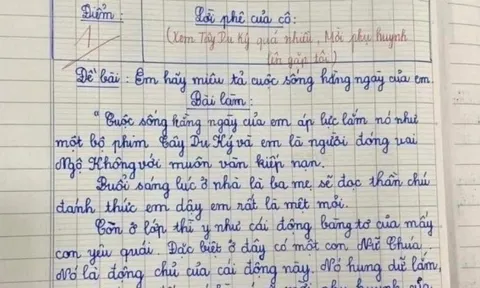 Điểm:
Lời phê của cô:
1
(Xem Tây Du Ký quá nhiều, Mời phụ huynh
lên gặp tôi)
Đề bài: Em hãy miêu tả cuộc sống hằng ngày của em.
Bài làm:
"Cuộc sống hằng ngày của em áp lực lắm nó như
một bộ phim Tây Du Ký và em là người đóng vai
Ngộ Không với muôn vàn kiếp nạn.
Buổi sáng lục ở nhà là ba mẹ sẽ đọc thần chú
đánh thức em dậy em rất là mệt mỏi.
Còn ở lớp thì y như cái động băng tơ của mấy
con yêu quái. Đặc biệt ở đây có một con Nữ Chúa.
Nó là động chủ của cái động này. Nó hung dữ lắm,